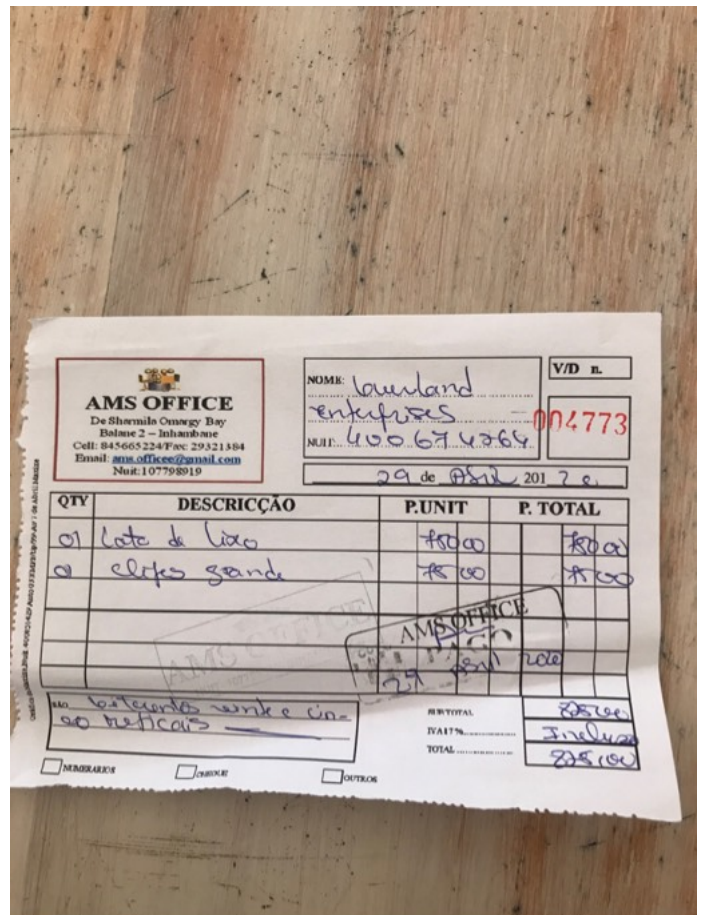 AMS OFFICE
De Sharmila Omargy Bay
Balane 2 – Inhambane
Cell: 845665224/Fax: 29321384
Email: ams.officee@gmail.com
Nuit:107798919
NOME:
enterprises
NUIT: 400674264
V/D n.
004773
29 de Abril 201
QTY DESCRICÇÃO P.UNIT P. TOTAL
01 Lata de lixo 750 00 750 00
01 clipes grande 75 00 75 00
AMS OFFICE
AMS OFFICE
PAGO
29 Abril 2020
SÃO: oitocentos vinte e cin-
co meticais
SUBTOTAL 825,00
IVA 17% Incluso
TOTAL 825,00
NUMERARIOS CHEQUE OUTROS